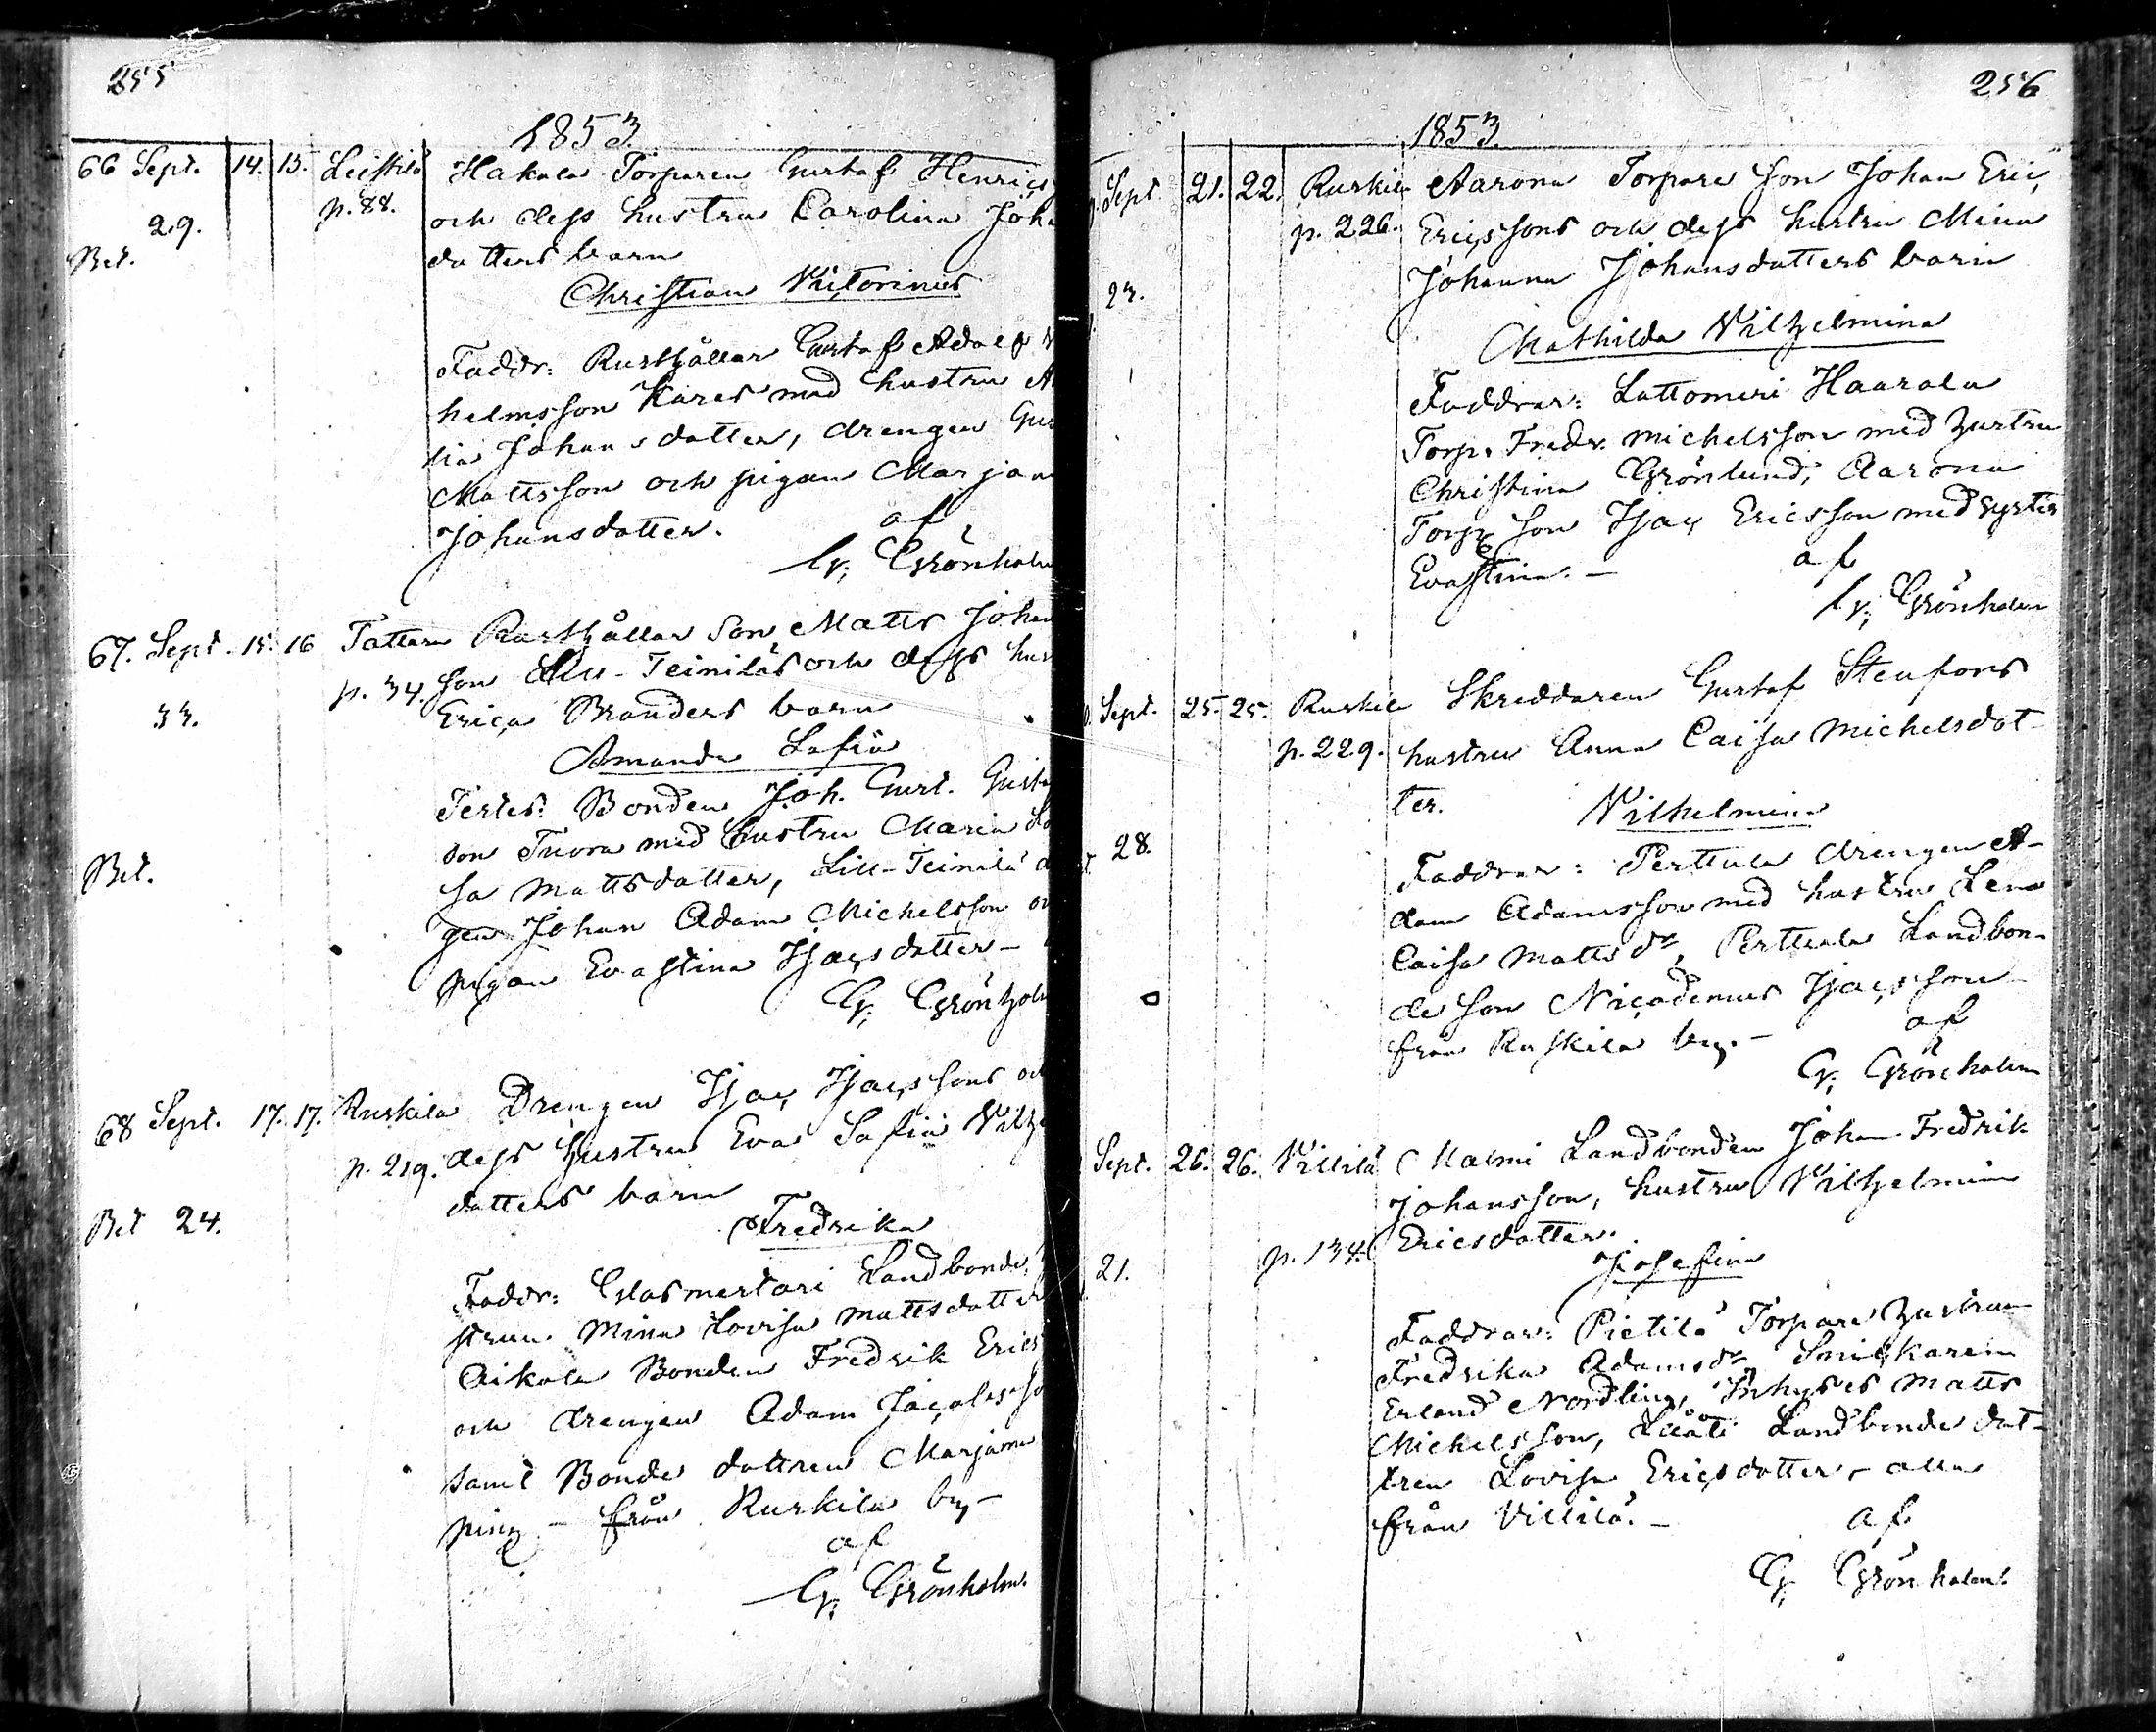 255
1853.
66 Sept. 14. 15. Leistilä Hakala Torparen Gustaf Henrics
p. 88. och dess hustru Carolina Joha
29.
Bet. datters barn
Christian Victorinus
Faddr: Rusthållar Gustaf Adolf
helmsson Kares med hustru
lia Johansdatter, drengen Gus
Mattsson och pigan Marjan
Johansdatter. af
G. Grönholm
67. Sept. 15. 16 Tattara Rusthållar Son Matts Johan
p. 34 son Lill-Teiniläs och dess hus
33. Erica Branders barn
Amanda Sofia
Testes: Bonden Joh. Gust. Gusta
son Tuora med hustru Maria Lo
Bet. sa Mattsdatter, Lill-Teinilä d
gen Johan Adam Michelsson oc
pigan Evastina Isacsdatter -
G. Grönholm
68 Sept. 17. 17. Ruskila Drengen Isac Isacssons och
p. 219. dess hustru Eva Sofia Vilhe
datters barn
Bet 24. Fredrika
Faddr: Glasmestari Landbonde
strun Mina Lovisa Mattsdatter
Aikala Bonden Fredrik Erics
och drengen Adam Jacobsso
samt Bonde dottren Marjana
från Ruskila by -
af
G. Grönholm.
256
1853.
Sept 21. 22. Ruskila Aarona Torpare Son Johan Eric
p. 226. Ericssons och dess hustru Mina
Johanna Johansdatters barn
23.
Mathilda Vilhelmina
Faddrar: Lattomeri Haarala
Torp. Fredr. Michelsson med hustru
Christina Grönlund, Aarona
Torp. Son Isac Ericsson med syster
Evastina. - af
G. Grönholm
Sept. 25. 25. Ruskila Skreddaren Gustaf Stenfors
p. 229. hustru Anna Caisa Michelsdot-
ter. Vilhelmina
28. Faddrar: Perttula drengen A-
dam Adamsson med hustru Lena
Caisa Mattsdr, Perttula Landbon-
de son Nicodemus Isacsson
från Ruskila by. - af
G. Grönholm
Sept. 26. 26. Villilä Malmi Landbonden Johan Fredrik
Johansson, hustru Vilhelmina
p. 134. Ericsdatter.
21. Josefina
Faddrar: Pietilä Torpare hustrun
Fredrika Adamsdr, Snickaren
Erland Nordling, Inhyses Matts
Michelsson, Landbonde dot-
tren Lovisa Ericsdotter, - alla
från Villilä. - af
G. Grönholm.